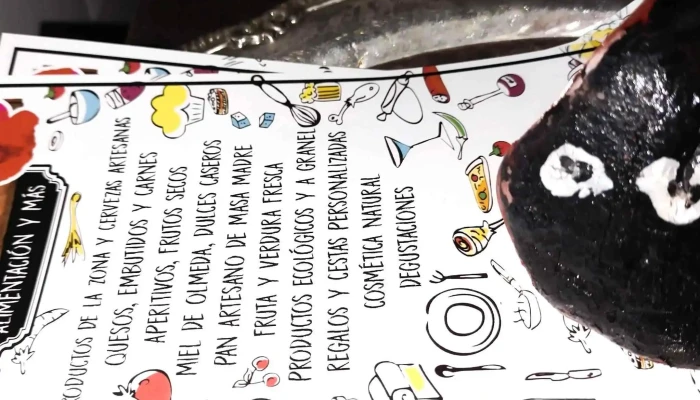 ALIMENTACIÓN Y MÁS
PRODUCTOS DE LA ZONA Y CERVEZAS ARTESANAS
QUESOS, EMBUTIDOS Y CARNES
APERITIVOS, FRUTOS SECOS
MIEL DE OLMEDA, DULCES CASEROS
PAN ARTESANO DE MASA MADRE
FRUTA Y VERDURA FRESCA
PRODUCTOS ECOLÓGICOS Y A GRANEL
REGALOS Y CESTAS PERSONALIZADAS
COSMÉTICA NATURAL
DEGUSTACIONES